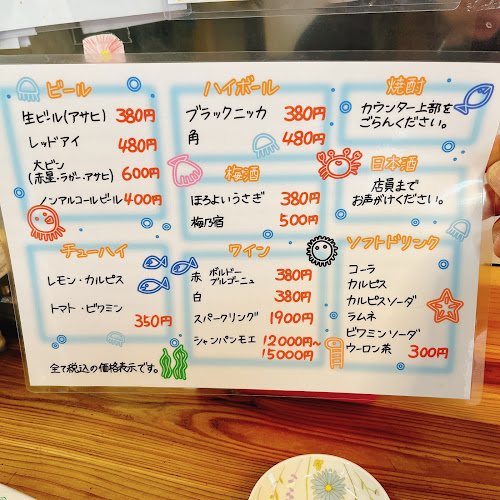 ビール
生ビール(アサヒ) 380円
レッドアイ 480円
大ビン
(赤星・ラガー・アサヒ) 600円
ノンアルコールビール 400円
チューハイ
レモン・カルピス
トマト・ビタミン
350円
全て税込の価格表示です。
ハイボール
ブラックニッカ 380円
角 480円
梅酒
ほろよいうさぎ 380円
梅乃宿 500円
ワイン
赤 ボルドー
ブルゴーニュ 380円
白 380円
スパークリング 1900円
シャンパンモエ 12000円~
15000円
焼酎
カウンター上部を
ごらんください。
日本酒
店員まで
お声がけください。
ソフトドリンク
コーラ
カルピス
カルピスソーダ
ラムネ
ビタミンソーダ
ウーロン茶 300円